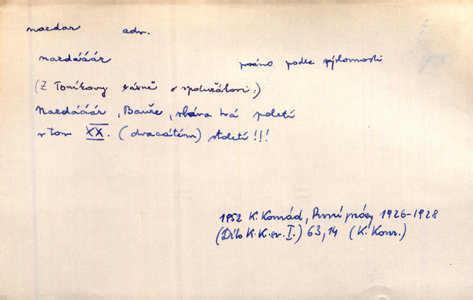 nazdar adv.
nazdááár psáno podle výslovnosti
(Z Toníkovy básně o spolužákovi:)
Nazdááár, Bauře, sláva tvá poletí
v tom XX. (dvacátém) století!!!
1952 K. Konrád, První prózy 1926-1928
(Dílo K. K. sv. I.) 63,14 (K. Konr.)